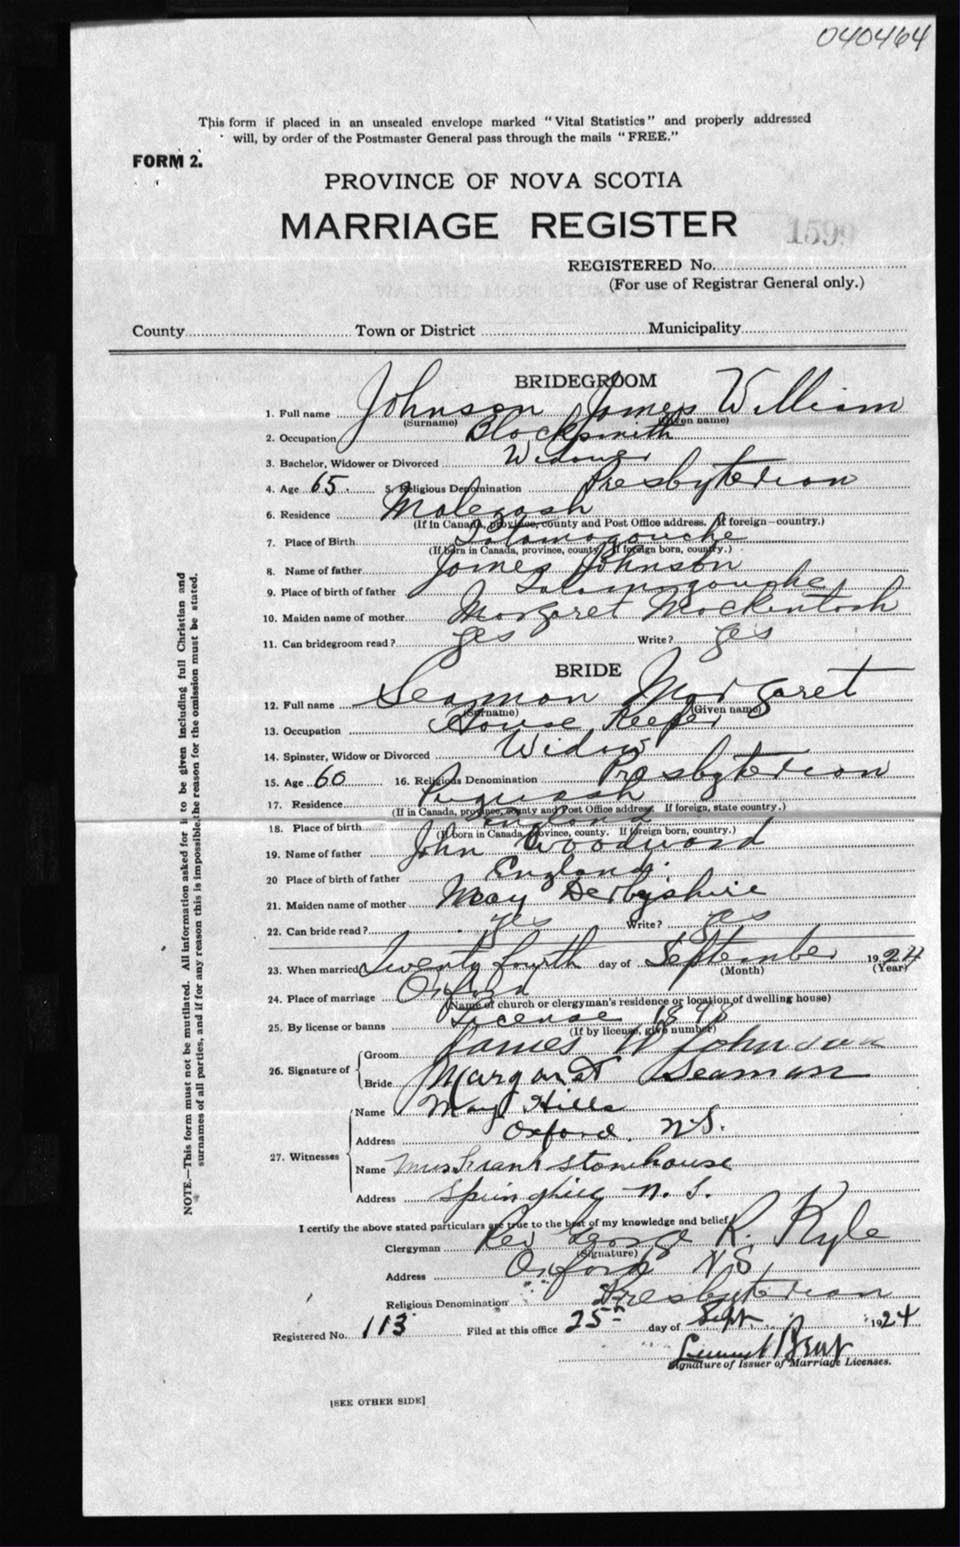 040464
This form if placed in an unsealed envelope marked "Vital Statistics" and properly addressed
will, by order of the Postmaster General pass through the mails "FREE."
FORM 2.
PROVINCE OF NOVA SCOTIA
MARRIAGE REGISTER
1599
REGISTERED No.
(For use of Registrar General only.)
County Town or District Municipality
BRIDEGROOM
1. Full name Johnson James William
(Surname) (Given name)
2. Occupation Blacksmith
3. Bachelor, Widower or Divorced Widower
4. Age 65 5. Religious Denomination Presbyterian
6. Residence Malegash
(If in Canada, province, county and Post Office address. If foreign—country.)
7. Place of Birth Tatamagouche
(If born in Canada, province, county. If foreign born, country.)
8. Name of father James Johnson
9. Place of birth of father Tatamagouche
10. Maiden name of mother Margaret Mackintosh
11. Can bridegroom read? Yes Write? Yes
BRIDE
12. Full name Seaman Margaret
(Surname) (Given name)
13. Occupation House Keeper
14. Spinster, Widow or Divorced Widow
15. Age 60 16. Religious Denomination Presbyterian
17. Residence Pugwash
(If in Canada, province, county and Post Office address. If foreign, state country.)
18. Place of birth England
(If born in Canada, province, county. If foreign born, country.)
19. Name of father John Woodward
20 Place of birth of father England
21. Maiden name of mother May Derbyshire
22. Can bride read? yes Write? yes
23. When married Twenty fourth day of September 1924
(Month) (Year)
24. Place of marriage Oxford
(Name of church or clergyman's residence or location of dwelling house)
25. By license or banns License 1898
(If by license, give number)
26. Signature of Groom James W Johnson
Bride Margaret Seaman
27. Witnesses Name May Hills
Address Oxford, N.S.
Name Mrs Frank Stonehouse
Address Springhill N.S.
I certify the above stated particulars are true to the best of my knowledge and belief,
Clergyman Rev George R. Kyle
(Signature)
Address Oxford N S
Religious Denomination Presbyterian
Registered No. 113 Filed at this office 25th day of Sept 1924
Signature of Issuer of Marriage Licenses.
[SEE OTHER SIDE]
NOTE.—This form must not be mutilated. All information asked for is to be given including full Christian and
surnames of all parties, and if for any reason this is impossible, the reason for the omission must be stated.